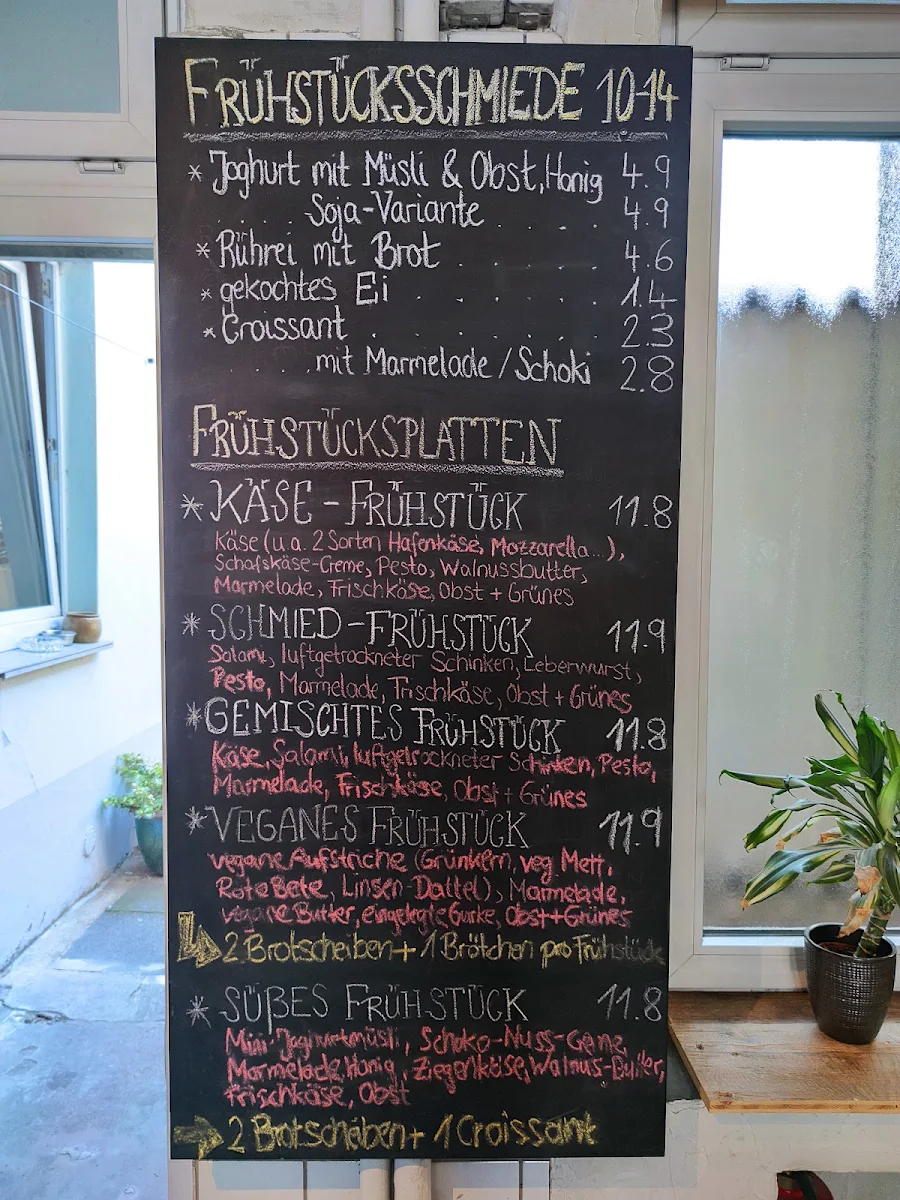 FRÜHSTÜCKSSCHMIEDE 10-14
* Joghurt mit Müsli & Obst, Honig 4.9
..... Soja-Variante ..... 4.9
* Rührei mit Brot ..... 4.6
* gekochtes Ei ...... 1.4
* Croissant ...... 2.3
.... mit Marmelade / Schoki 2.8
FRÜHSTÜCKSPLATTEN
* KÄSE - FRÜHSTÜCK 11.8
Käse (u.a. 2 Sorten Hafenkäse, Mozzarella...),
Schafskäse-Creme, Pesto, Walnussbutter,
Marmelade, Frischkäse, Obst + Grünes
* SCHMIED - FRÜHSTÜCK 11.9
Salami, luftgetrockneter Schinken, Leberwurst,
Pesto, Marmelade, Frischkäse, Obst + Grünes
* GEMISCHTES FRÜHSTÜCK 11.8
Käse, Salami, luftgetrockneter Schinken, Pesto,
Marmelade, Frischkäse, Obst + Grünes
* VEGANES FRÜHSTÜCK 11.9
vegane Aufstriche (Grünkern, veg. Mett,
Rote Bete, Linsen-Dattel), Marmelade,
vegane Butter, eingelegte Gurke, Obst + Grünes
2 Brotscheiben + 1 Brötchen pro Frühstück
* SÜßES FRÜHSTÜCK 11.8
Mini-Joghurtmüsli, Schoko-Nuss-Creme,
Marmelade, Honig, Ziegenkäse, Walnus-Butter,
Frischkäse, Obst
2 Brotscheiben + 1 Croissant